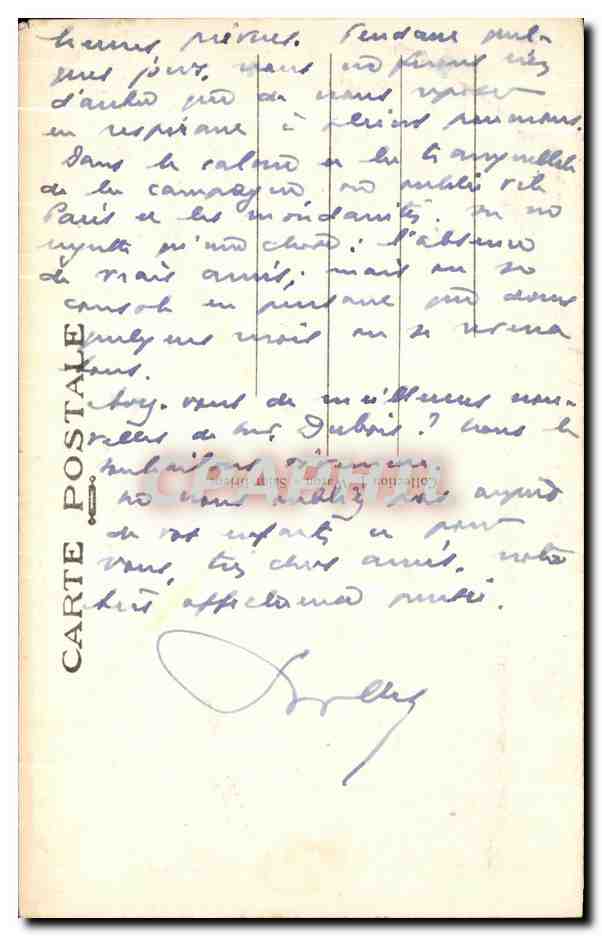 heures prévues. Pendant quel-
ques jours, nous ne ferons rien
d'autre que de nous reposer
en respirant à pleins poumons.
Dans le calme et la tranquillité
de la campagne on oublie vite
Paris et les mondanités. On ne
regrette qu'une chose : l'absence
de vrais amis ; mais on se
console en pensant que dans
quelques mois on se reverra
tous.
Avez-vous de meilleures nou-
velles de Mr. Dubois ? Nous le
souhaitons
ne nous oubliez pas auprès
de vos enfants et pour
vous, très chers amis, notre
très affectueuse pensée.
CARTE POSTALE
CPAPHIL